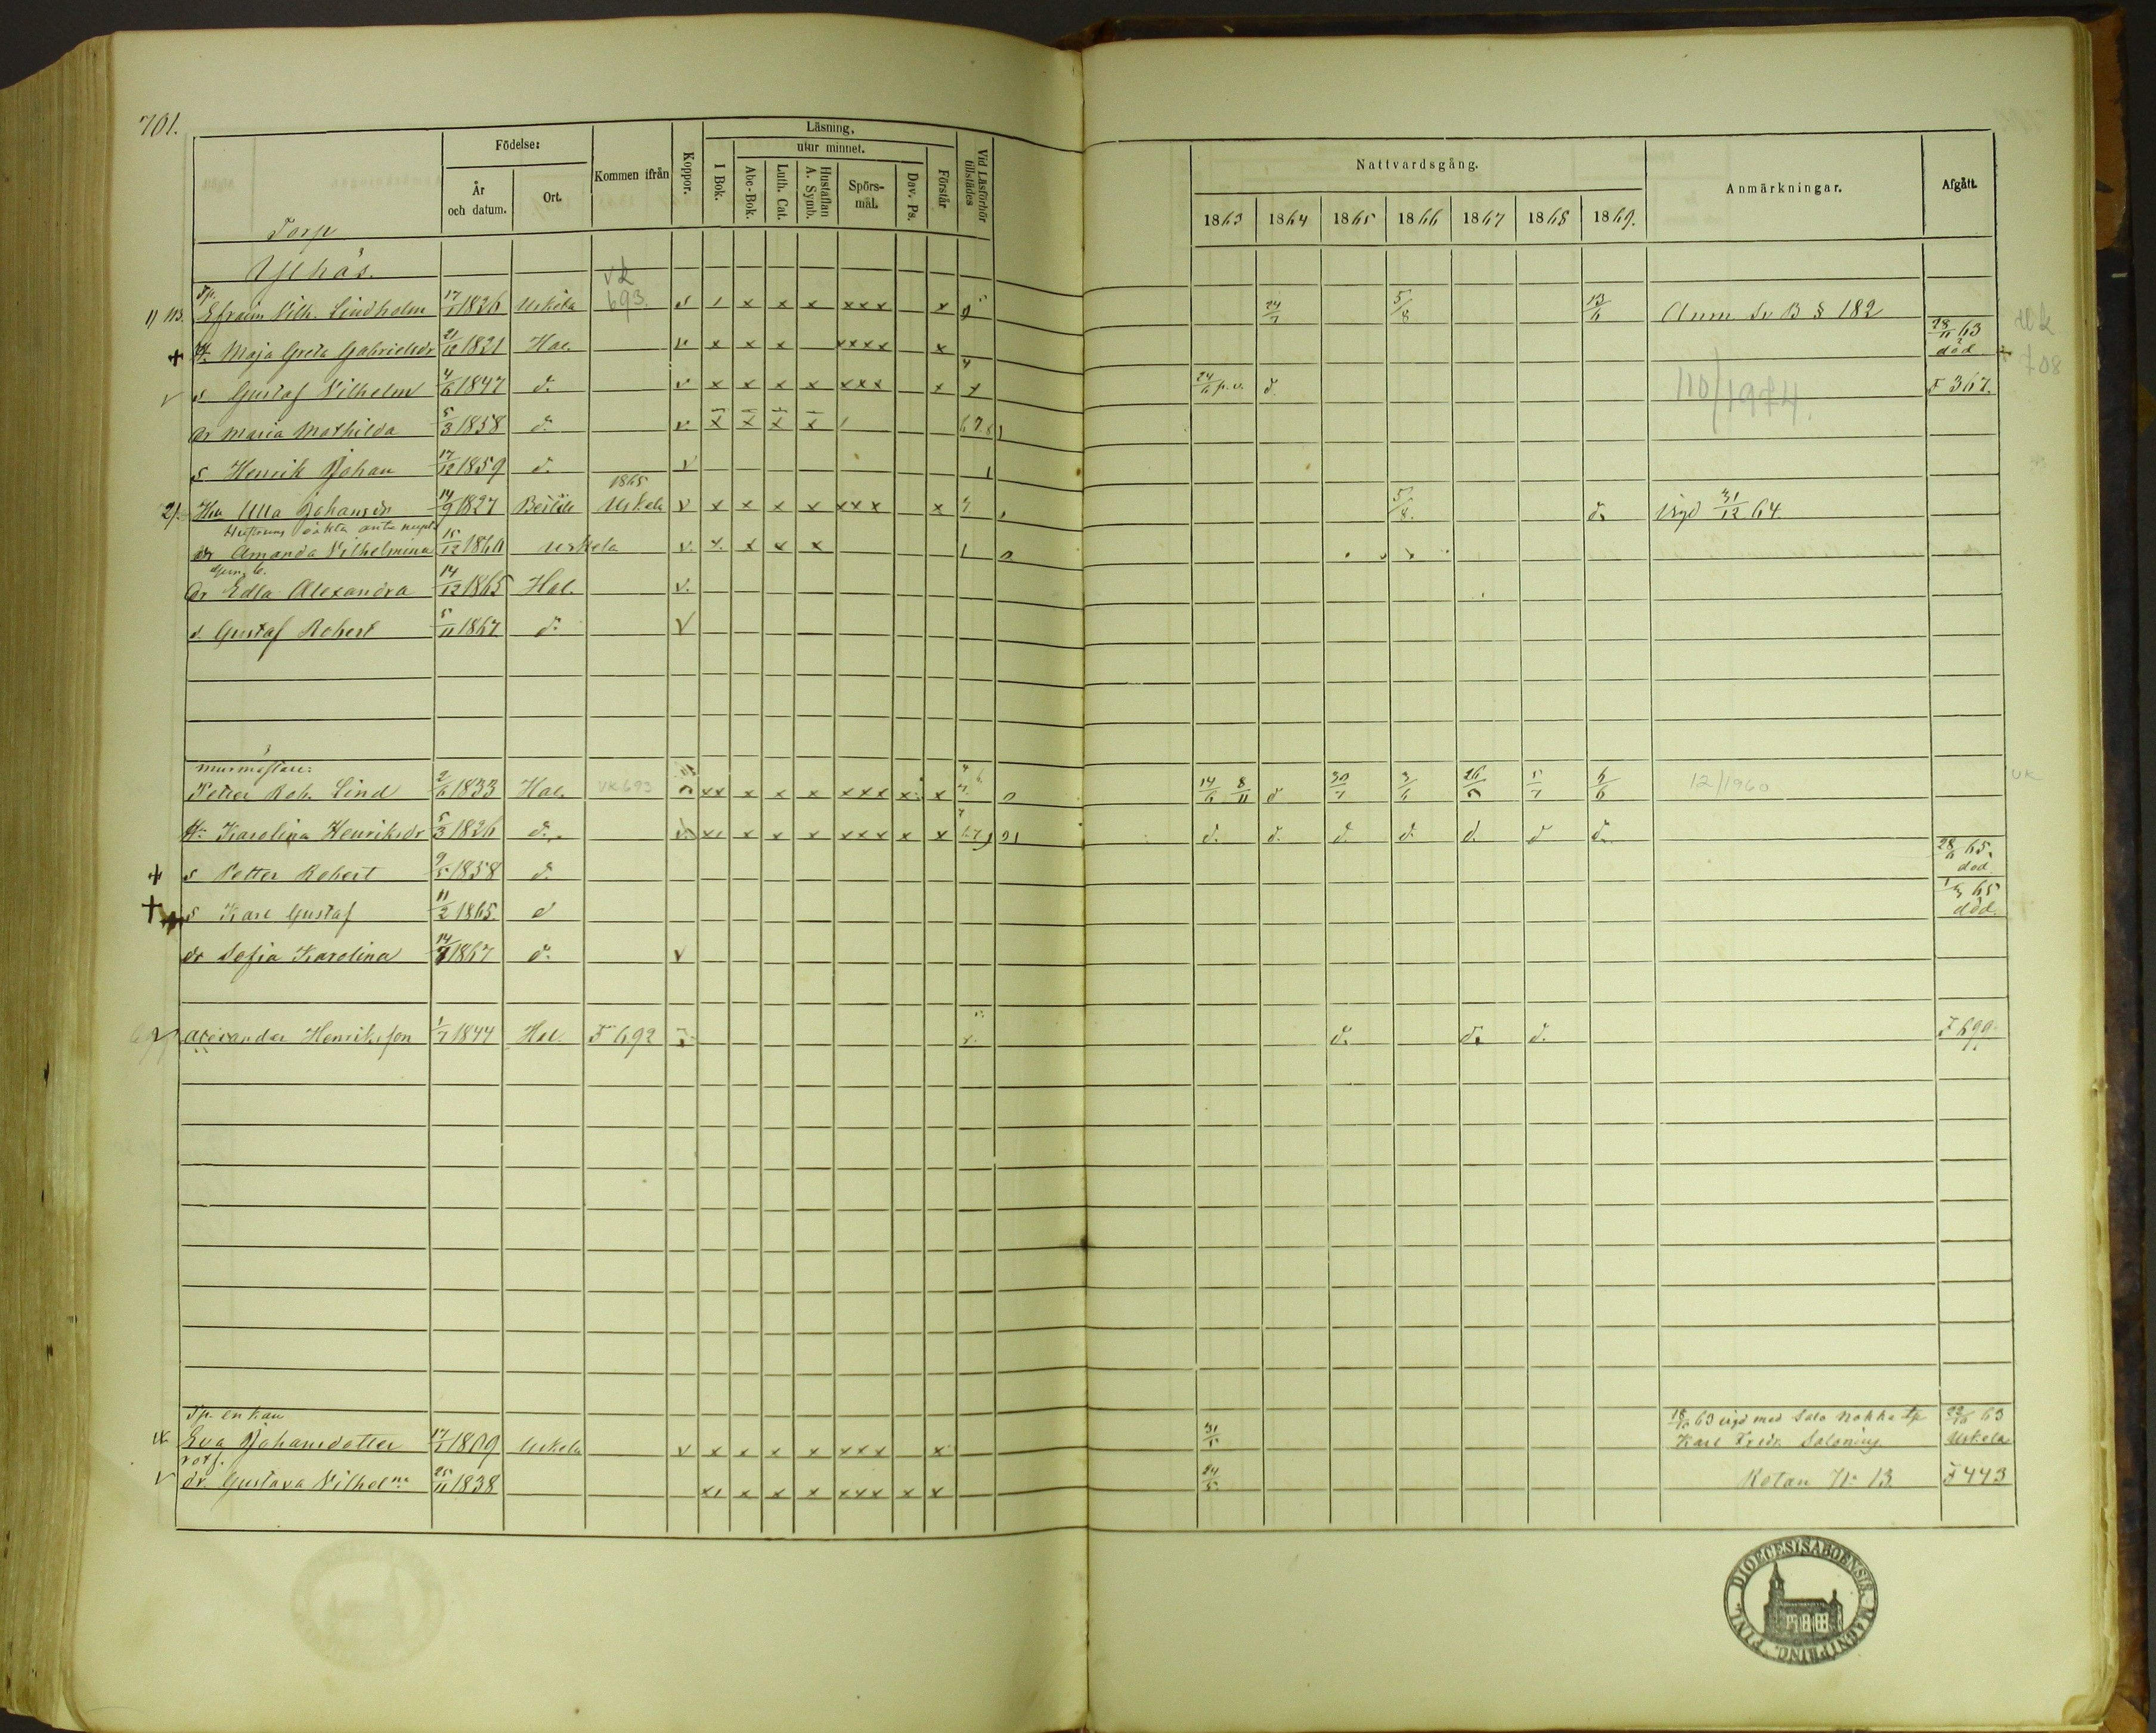 701.
Födelse: Kommen ifrån Koppor. Läsning, Vid Läsförhör tillstädes Nattvardsgång. Anmärkningar. Afgått.
utur minnet.
År och datum. Ort. I Bok. Abc-Bok. Luth. Cat. Hustaflan A. Symb. Spörsmål. Dav. Ps. Förstår
1863 1864 1865 1866 1867 1868 1869.
Torp
vk
Tp.
Efraim Vilh. Lindholm 1826 Uskela 693. x x x xxx x 24/7 5/8 13/6 Anm Sv B § 182
H: Maja Greta Gabrielsdr 21/12 1821 Hal. v x x x xxxx x 28/11 63 död
s Gustaf Vilhelm 4/6 1847 d:o v x x x x xxx x 24/6 p.v. d F 367.
110/1974.
dr Maria Mathilda 5/3 1858 d:o v. x x x x 678
s Henrik Johan 17/12 1859 d. v
1865
2/. Hu Ulla Johansdr 14/9 1827 Uskela v x x x x xxx x 5/8. d:o Vigd 31/12 64.
Hustruns oäkta
dr Amanda Vilhelmina 15/12 1860 Uskela v. x. x x x
dr Edla Alexandra 14/12 1865 Hal. v.
s. Gustaf Robert 5/11 1867 d:o v
murmästare:
Petter Rob. Lind 2/6 1833 Hal. VK 693 xx x x x xxx x x 14/6 8/11 d 30/7 3/6 26/5 5/7 6/6 12/1960 UK
H: Karolina Henriksdr 5/3 1826 d:o v. x x x xxx x x d. d. d. d. d. d d.
+ s Petter Robert 9/5 1858 d. 28/6 65. död.
+ s Karl Gustaf 11/2 1865. d 65 död.
dr Sofia Karolina 1867 d:o v
Alexander Henriksson 1/7 1844 Hal. F 692 d. d. d. F 690.
Tp. enkan
Eva Johansdotter 17/7 1809 Uskela v x x x x xxx x 31/5 18/10 63 vigd med Salo Nokka tp 63
Karl Fredr. Salonius Uskela
rotf.
v dr. Gustava Vilhel:na 25/11 1838 x x x xxx x x 24/5 Rotan N:o 13. F 443
DIOECESIS ABOENSIS MAGNI PRINC. FINL.